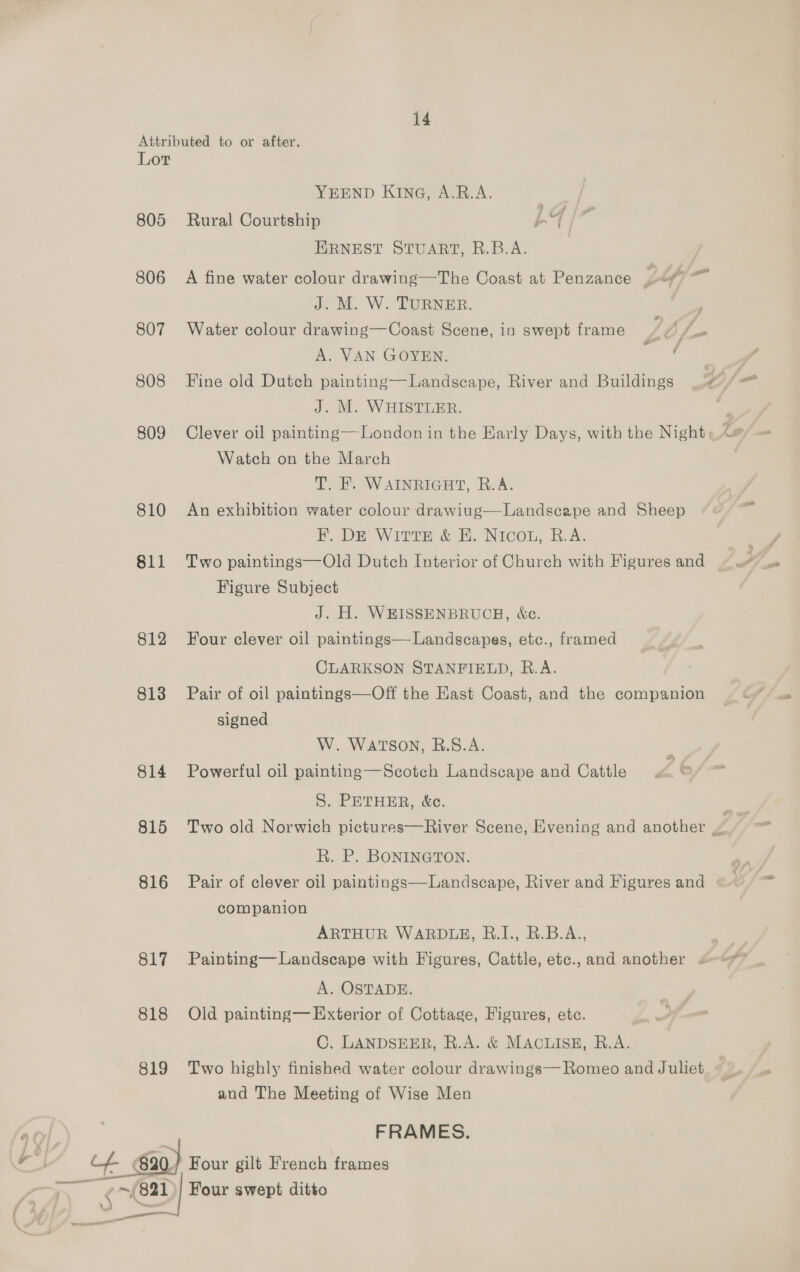 14
Attributed to or after.
Lot
YEEND KING, A.R.A.
805 Rural Courtship
ERNEST STUART, R.B.A.
806 A fine water colour drawing—The Coast at Penzance
J. M. W. TURNER.
807 Water colour drawing—Coast Scene, in swept frame
A. VAN GOYEN.
808 Fine old Dutch painting—Landscape, River and Buildings
J. M. WHISTLER.
809 Clever oil painting—London in the Early Days, with the Night
Watch on the March
T. F. WAINRIGHT, R.A.
810 An exhibition water colour drawiug—Landscape and Sheep
F. DE WITTE & E. NICOL, R.A.
811 Two paintings—Old Dutch Interior of Church with Figures and
Figure Subject
J. H. WEISSENBRUCH, &c.
812 Four clever oil paintings—Landscapes, etc., framed
CLARKSON STANFIELD, R.A.
813 Pair of oil paintings—Off the East Coast, and the companion
signed
W. WATSON, R.S.A.
814 Powerful oil painting—Scotch Landscape and Cattle
S. PETHER, &c.
815 Two old Norwich pictures—River Scene, Evening and another
R. P. BONINGTON.
816 Pair of clever oil paintings—Landscape, River and Figures and
companion
ARTHUR WARDLE, R.I., R.B.A.,
817 Painting—Landscape with Figures, Cattle, etc., and another
A. OSTADE.
818 Old painting—Exterior of Cottage, Figures, etc.
C. LANDSEER, R.A. & MACLISE, R.A.
819 Two highly finished water colour drawings—Romeo and Juliet
and The Meeting of Wise Men
FRAMES.
820 Four gilt French frames
821 Four swept ditto